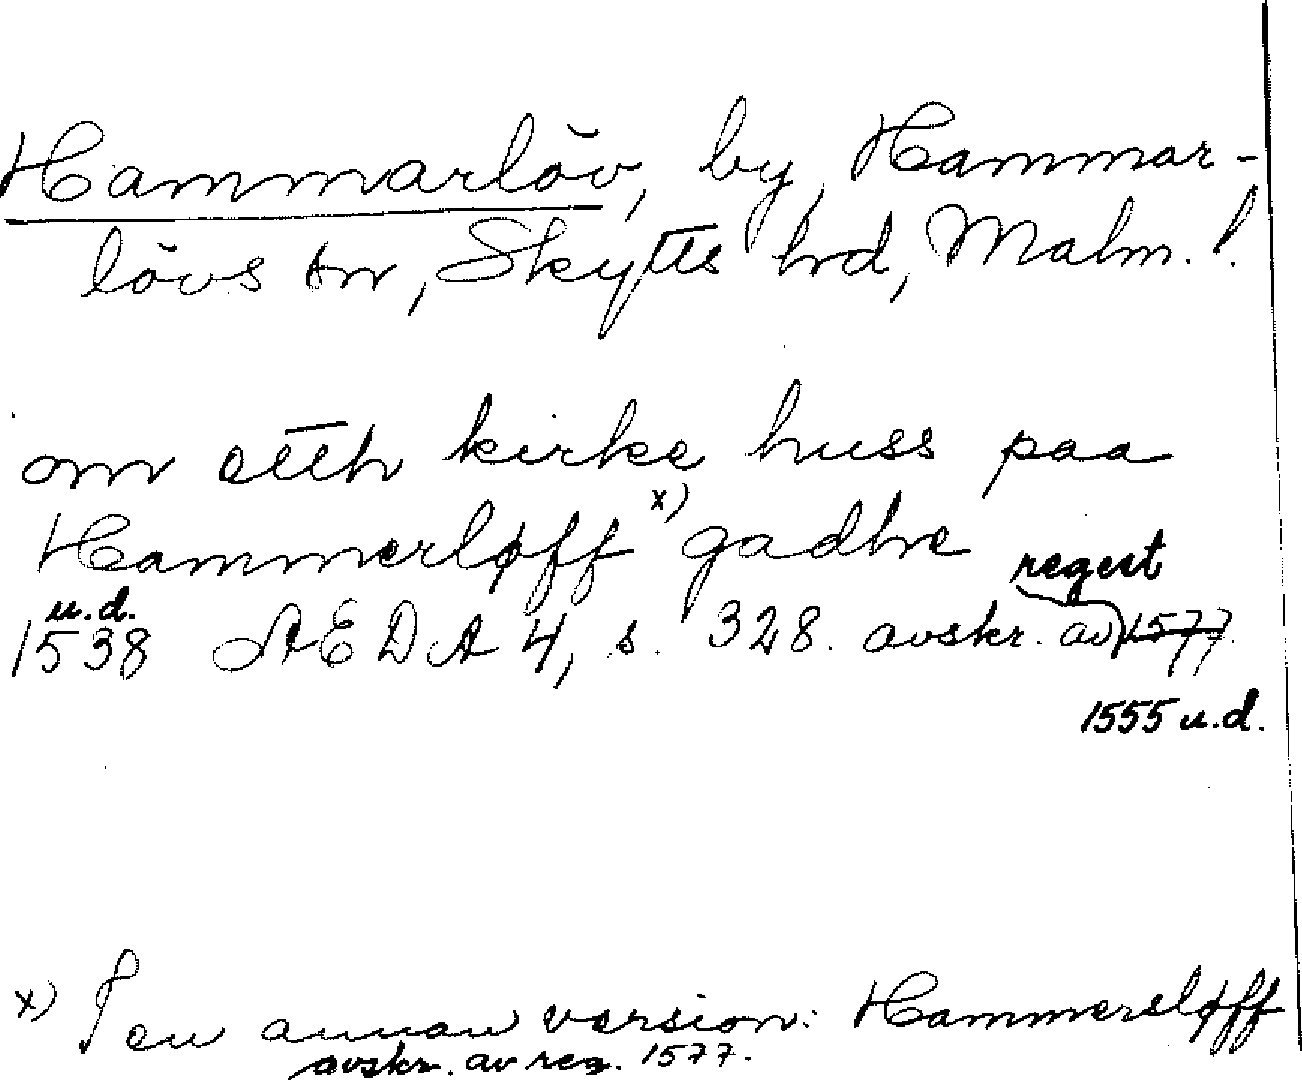 Hammarlöv, by, Hammar-
lövs sn, Skytts hrd, Malm. l.
om etth kirke huss paa
Hammerløff x) gadhe
regest
u.d.
1538 AEDA 4, s. 328. avskr. av 1577.
1555 u.d.
x) I en annan version: Hammersløff
avskr. av reg. 1577.